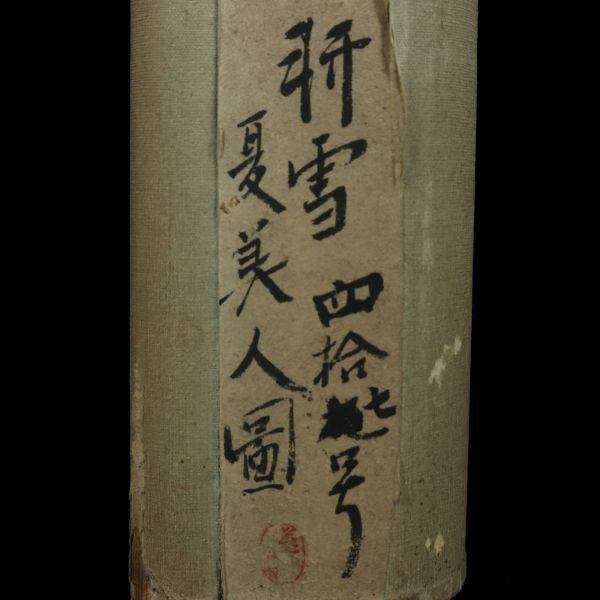 雪 四拾七号
夏美人圖